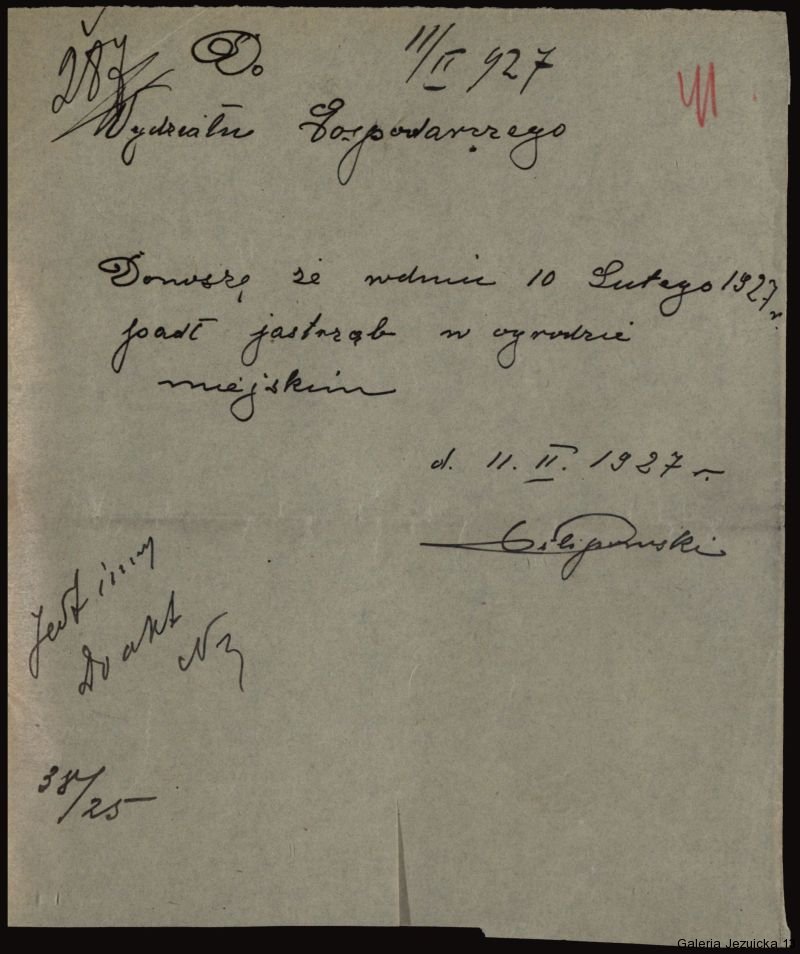 287 Do 11/II 927
Wydziału Gospodarczego
Donoszę że wdniu 10 Lutego 1927 r.
padł jastrząb w ogrodzie
miejskim
d. 11. II. 1927 r.
Filipowski
Jest inny
Do akt
38/25
Galeria Jezuicka 13